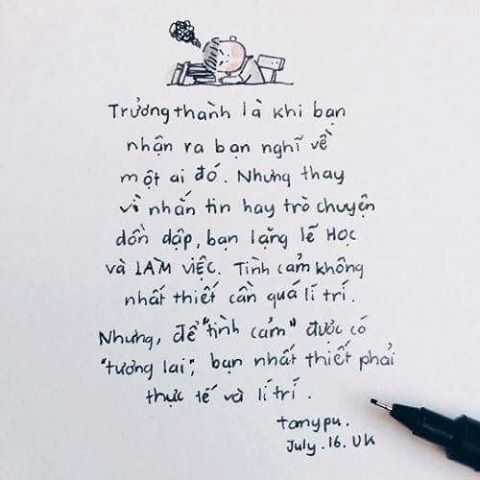 Trưởng thành là khi bạn
nhận ra bạn nghĩ về
một ai đó. Nhưng thay
vì nhắn tin hay trò chuyện
dồn dập, bạn lặng lẽ HỌC
và LÀM VIỆC. Tình cảm không
nhất thiết cần quá lí trí.
Nhưng, để "tình cảm" được có
"tương lai", bạn nhất thiết phải
thực tế và lí trí.
tonypu.
July.16.UK